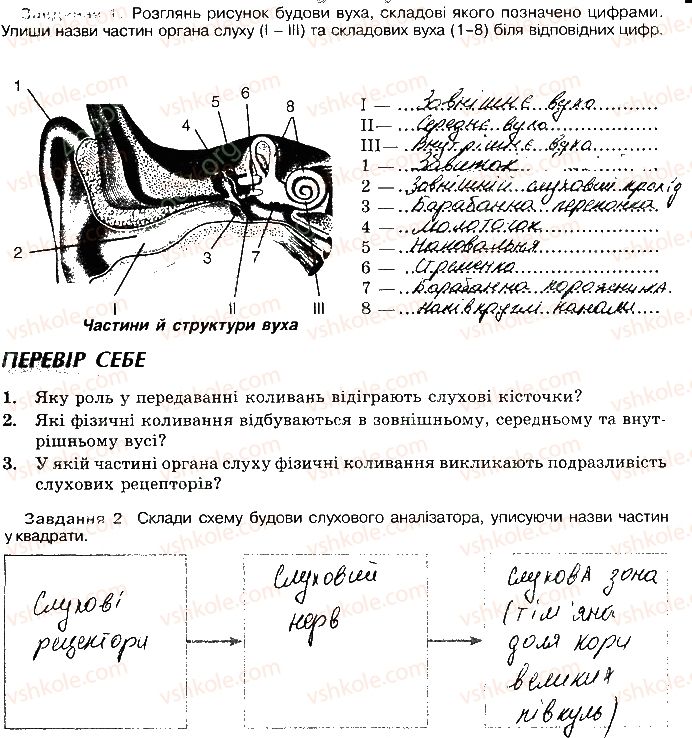 Завдання 1. Розглянь рисунок будови вуха, складові якого позначено цифрами.
Упиши назви частин органа слуху (I – III) та складових вуха (1–8) біля відповідних цифр.
1
2
3
4
5
6
7
8
I
II
III
Частини й структури вуха
I — Зовнішнє вухо
II — Середнє вухо
III — Внутрішнє вухо
1 — Завиток
2 — Зовнішній слуховий прохід
3 — Барабанна перепонка
4 — Молоточок
5 — Наковальня
6 — Стременко
7 — Барабанна порожнина
8 — напівкруглі канали
ПЕРЕВІР СЕБЕ
1. Яку роль у передаванні коливань відіграють слухові кісточки?
2. Які фізичні коливання відбуваються в зовнішньому, середньому та внут-
рішньому вусі?
3. У якій частині органа слуху фізичні коливання викликають подразливість
слухових рецепторів?
Завдання 2 Склади схему будови слухового аналізатора, уписуючи назви частин
у квадрати.
Слухові
рецептори
Слуховий
нерв
слухова зона
(тім'яна
доля кори
великих
півкуль)
vshkole.com